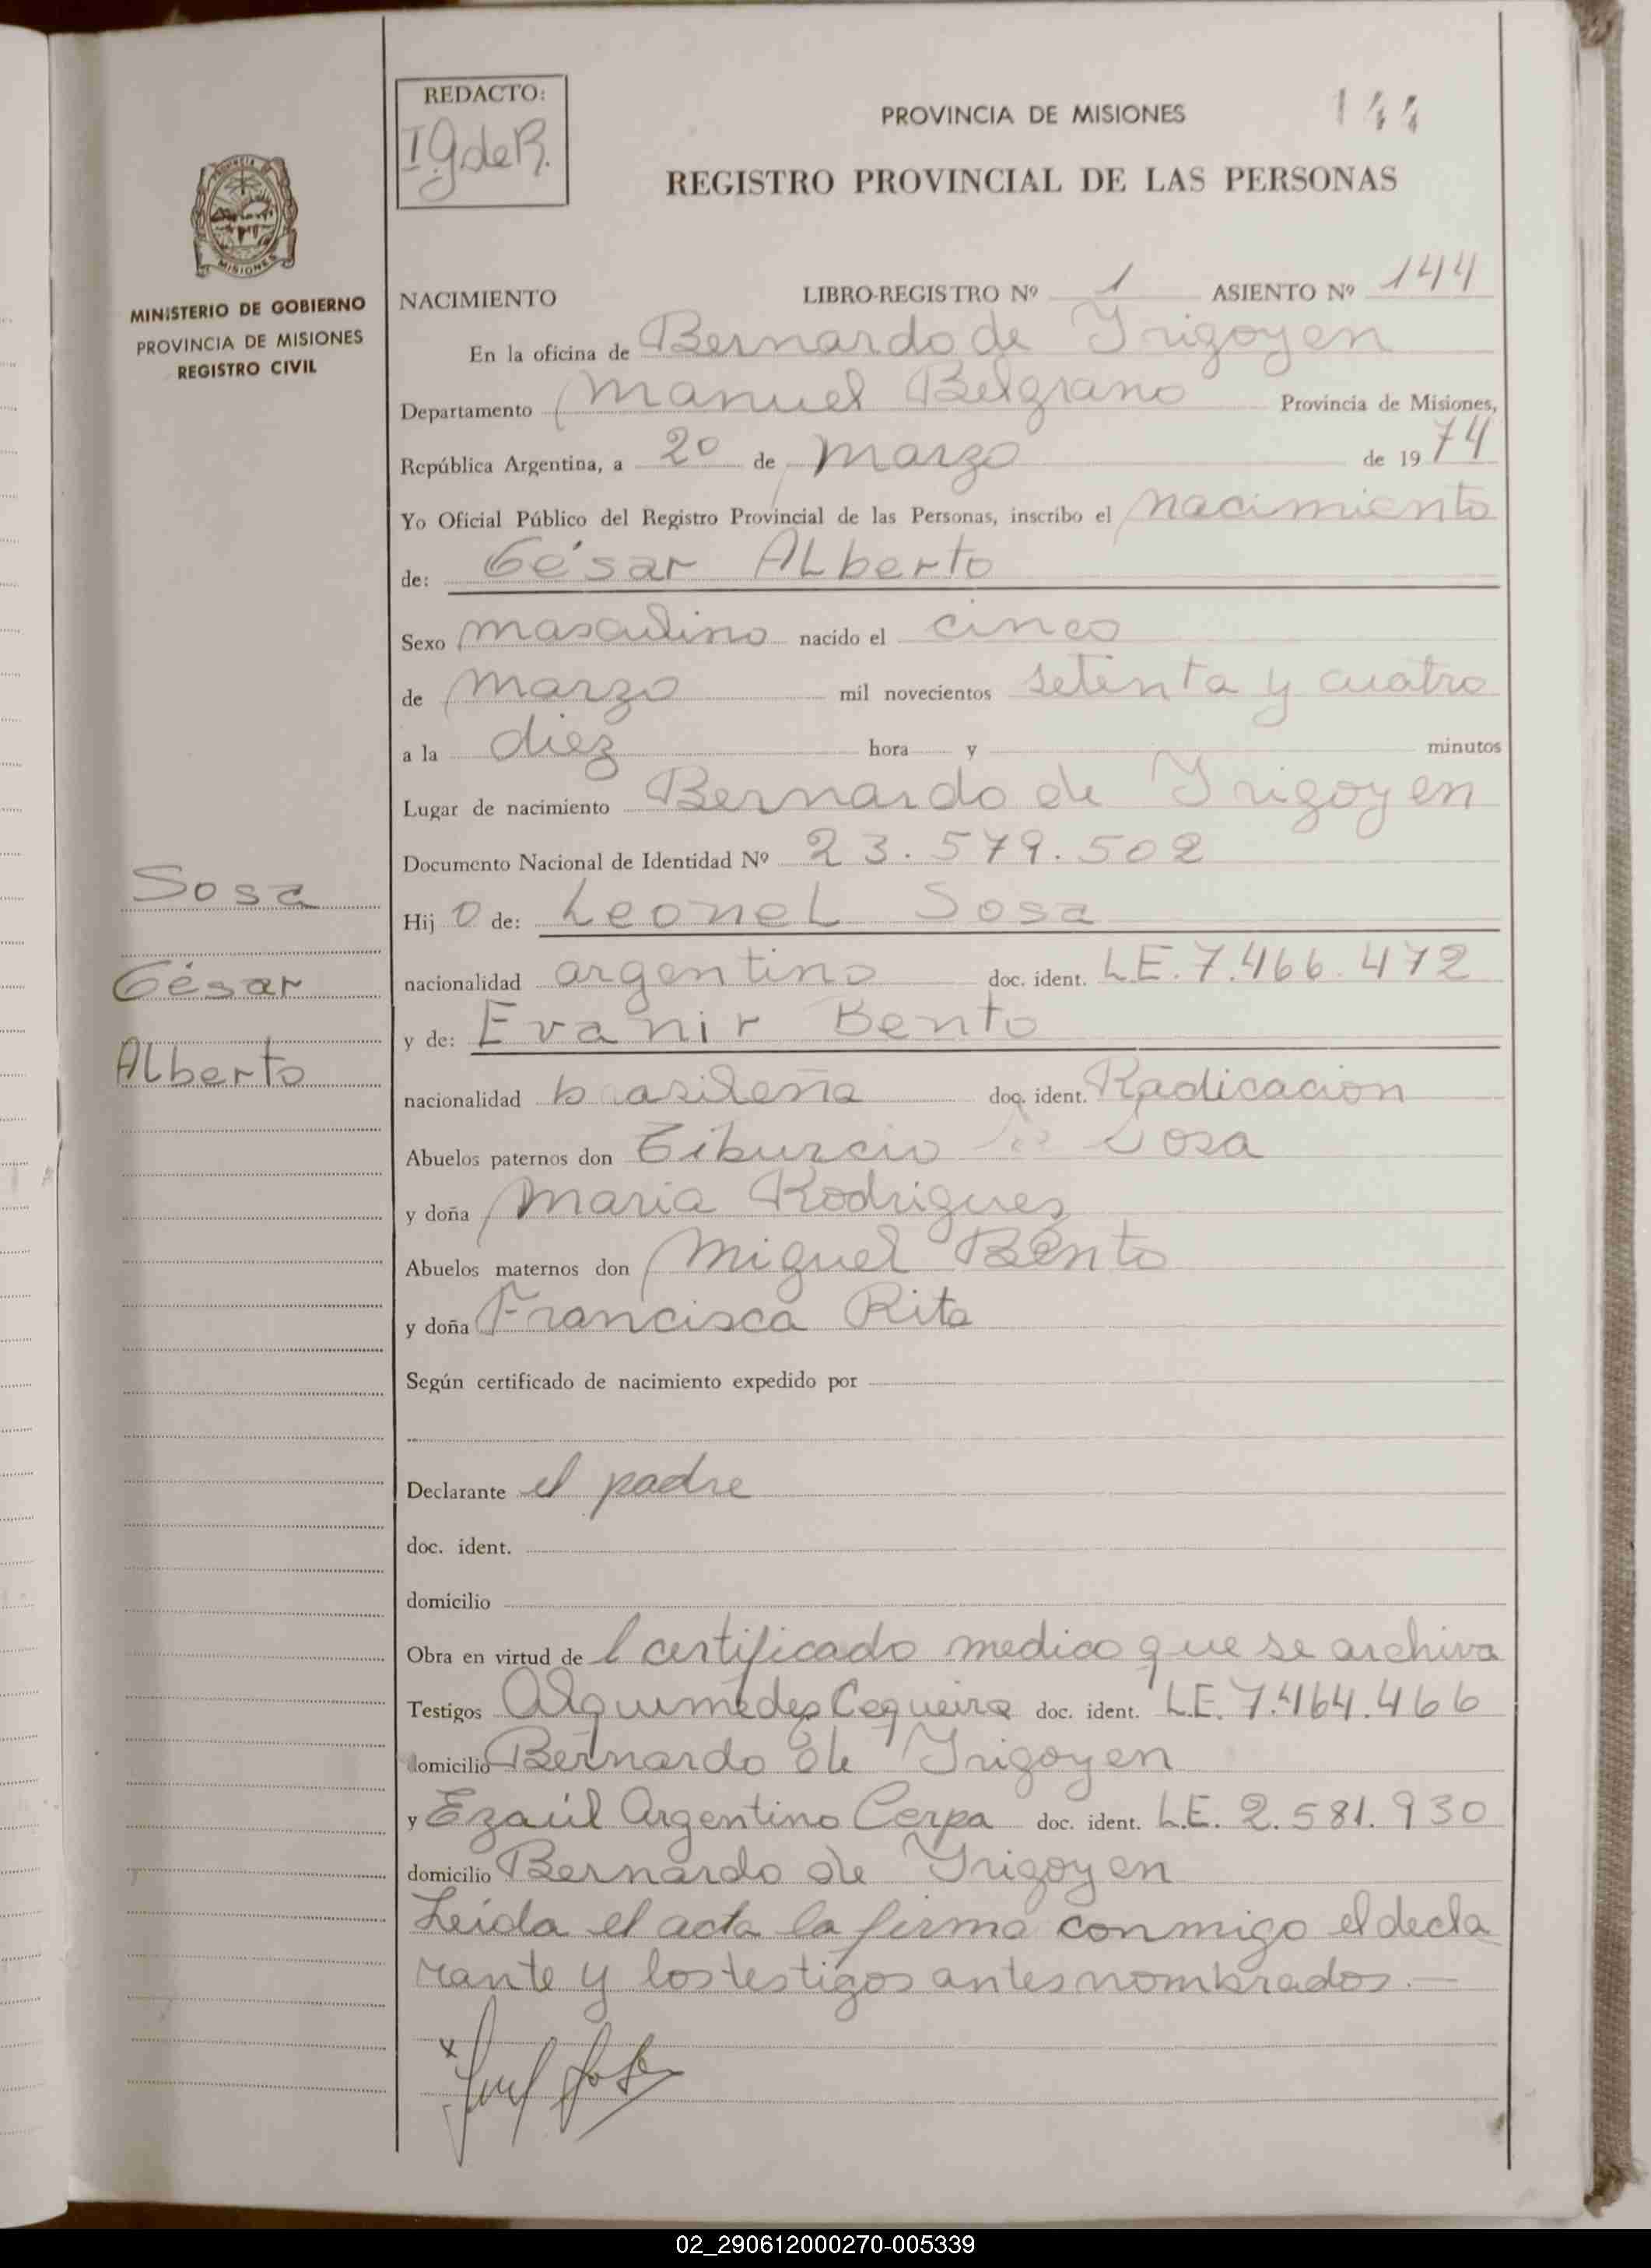 REDACTO:
I.G de R.
PROVINCIA DE MISIONES
144
REGISTRO PROVINCIAL DE LAS PERSONAS
MISIONES
MINISTERIO DE GOBIERNO
PROVINCIA DE MISIONES
REGISTRO CIVIL
NACIMIENTO LIBRO-REGISTRO Nº 1 ASIENTO Nº 144
En la oficina de Bernardo de Irigoyen
Departamento Manuel Belgrano Provincia de Misiones,
República Argentina, a 20 de marzo de 1974
Yo Oficial Público del Registro Provincial de las Personas, inscribo el nacimiento
de: César Alberto
Sexo masculino nacido el cinco
de marzo mil novecientos setenta y cuatro
a la diez hora y minutos
Lugar de nacimiento Bernardo de Irigoyen
Documento Nacional de Identidad Nº 23.579.502
Sosa
Hijo de: Leonel Sosa
César
nacionalidad argentino doc. ident. L.E. 7.466.472
y de: Evanir Bento
Alberto
nacionalidad brasileña doc. ident. Radicación
Abuelos paternos don Tiburcio Sosa
y doña Maria Rodrigues
Abuelos maternos don Miguel Bento
y doña Francisca Rita
Según certificado de nacimiento expedido por
Declarante el padre
doc. ident.
domicilio
Obra en virtud del certificado medico que se archiva
Testigos Alquimedes Cequeira doc. ident. L.E. 7.464.466
domicilio Bernardo de Irigoyen
y Ezaúl Argentino Cerpa doc. ident. L.E. 2.581.930
domicilio Bernardo de Irigoyen
Leida el acta la firma conmigo el decla
rante y los testigos antes nombrados.—
x
02_290612000270-005339